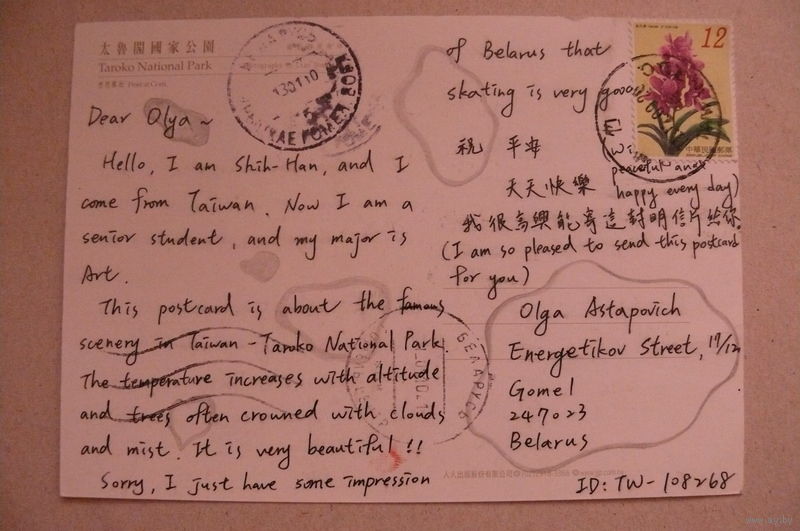 太魯閣國家公園
Taroko National Park
Dear Olya ~
Hello, I am Shih-Han, and I
come from Taiwan. Now I am a
senior student, and my major is
Art.
This postcard is about the famous
scenery in Taiwan - Taroko National Park.
The temperature increases with altitude
and trees often crowned with clouds
and mist. It is very beautiful !!
Sorry, I just have some impression
of Belarus that
skating is very good
12
中華民國郵票
祝 平安
peaceful and
天天快樂 happy every day)
我很高興能寄這封明信片給你
(I am so pleased to send this postcard
for you)
Olga Astapovich
Energetikov Street, 17/12
Gomel
247023
Belarus
ID: TW-108268
130110
БЕЛАРУСЬ